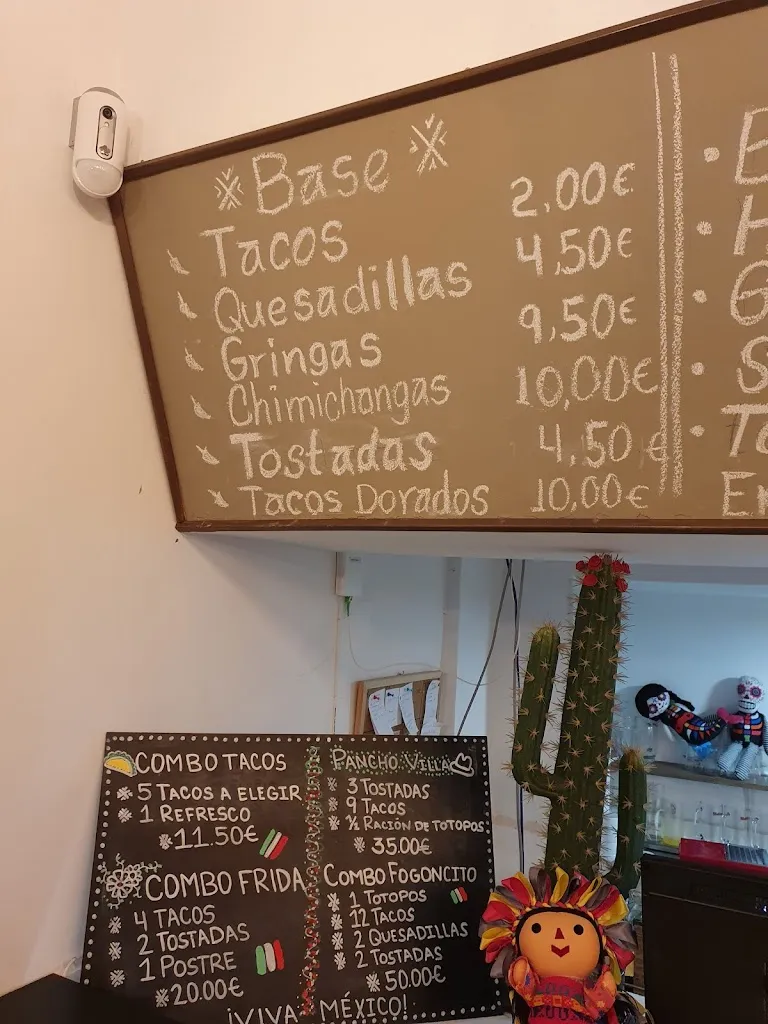 Base
Tacos 2,00€
Quesadillas 4,50€
Gringas 9,50€
Chimichangas 10,00€
Tostadas 4,50€
Tacos Dorados 10,00€
COMBO TACOS
5 TACOS A ELEGIR
1 REFRESCO
11.50€
PANCHO VILLA
3 TOSTADAS
9 TACOS
½ RACIÓN DE TOTOPOS
35.00€
COMBO FRIDA
4 TACOS
2 TOSTADAS
1 POSTRE
20.00€
COMBO FOGONCITO
1 TOTOPOS
12 TACOS
2 QUESADILLAS
2 TOSTADAS
50.00€
¡VIVA MÉXICO!